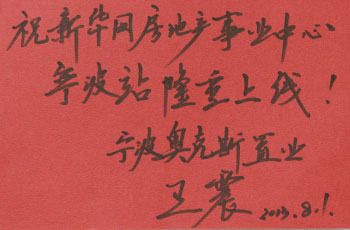 祝新华网房地产事业中心
宁波站隆重上线！
宁波奥克斯置业
王震 2013.8.1.